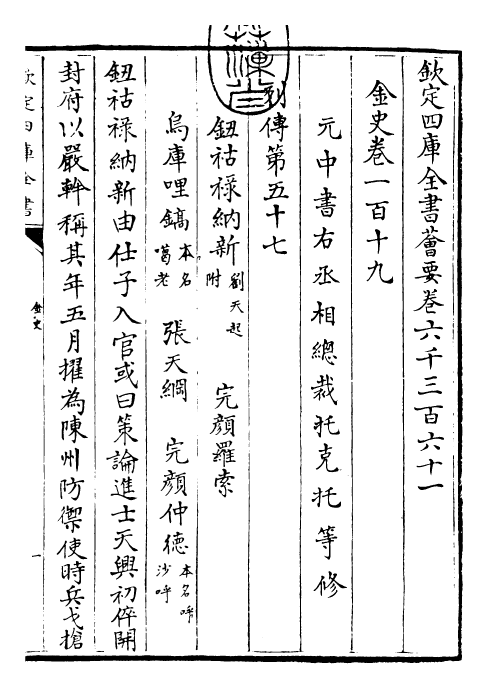 欽定四庫全書薈要卷六千三百六十一
金史卷一百十九
元中書右丞相總裁托克托等修
列傳第五十七
鈕祜祿納新劉天起附 完顔羅索
烏庫哩鎬本名噶老 張天綱 完顔仲德本名呼沙呼
鈕祜祿納新由仕子入官或曰策論進士天興初倅開
封府以嚴幹稱其年五月擢為陳州防禦使時兵戈搶
欽定四庫全書
金史
一